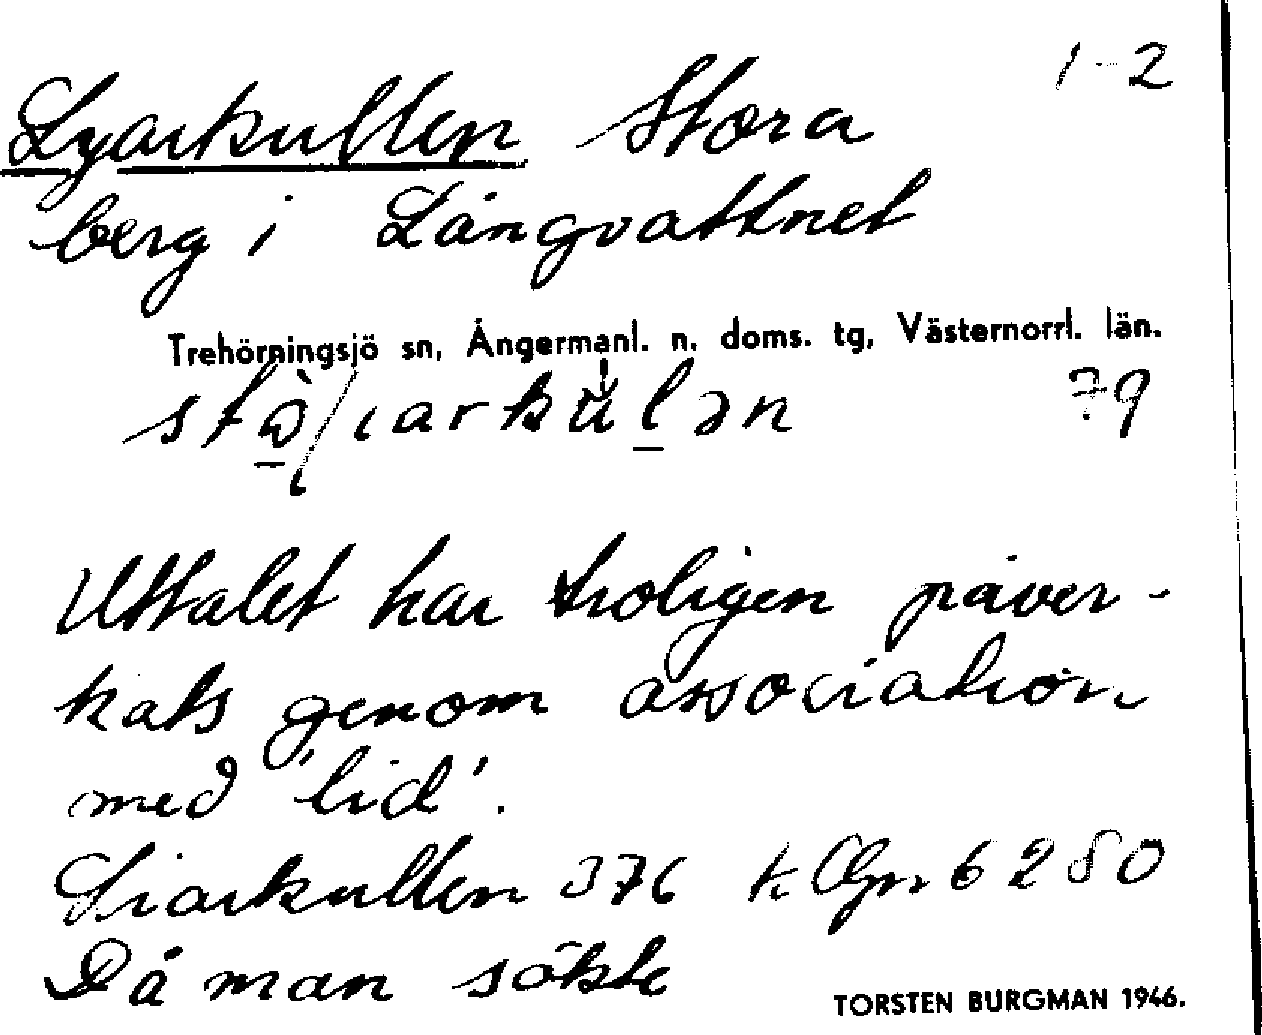 1-2
Lyarkullen Stora
berg i Långvattnet
Trehörningsjö sn, Ångermanl. n. doms. tg, Västernorrl. län.
79
Uttalet har troligen påver-
kats genom association
med 'lid'.
Liarkullen 376 k. Ögn 6280
Då man sökte
TORSTEN BURGMAN 1946.